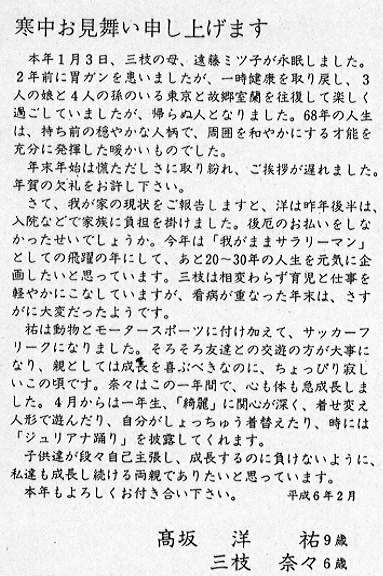 寒中お見舞い申し上げます
本年1月3日、三枝の母、遠藤ミツ子が永眠しました。
2年前に胃ガンを患いましたが、一時健康を取り戻し、3
人の娘と4人の孫のいる東京と故郷室蘭を往復して楽しく
過ごしていましたが、帰らぬ人となりました。68年の人生
は、持ち前の穏やかな人柄で、周囲を和やかにする才能を
充分に発揮した暖かいものでした。
年末年始は慌ただしさに取り紛れ、ご挨拶が遅れました。
年賀の欠礼をお許し下さい。
さて、我が家の現状をご報告しますと、洋は昨年後半は、
入院などで家族に負担を掛けました。後厄のお払いをしな
かったせいでしょうか。今年は「我がままサラリーマン」
としての飛躍の年にして、あと20〜30年の人生を元気に企
画したいと思っています。三枝は相変わらず育児と仕事を
軽やかにこなしていますが、看病が重なった年末は、さす
がに大変だったようです。
祐は動物とモータースポーツに付け加えて、サッカーフ
リークになりました。そろそろ友達との交遊の方が大事に
なり、親としては成長を喜ぶべきなのに、ちょっぴり寂し
いこの頃です。奈々はこの一年間で、心も体も急成長しま
した。4月からは一年生、「綺麗」に関心が深く、着せ変え
人形で遊んだり、自分がしょっちゅう着替えたり、時には
「ジュリアナ踊り」を披露してくれます。
子供達が段々自己主張し、成長するのに負けないように、
私達も成長し続ける両親でありたいと思っています。
本年もよろしくお付き合い下さい。 平成6年2月
髙坂 洋 祐9歳
三枝 奈々6歳